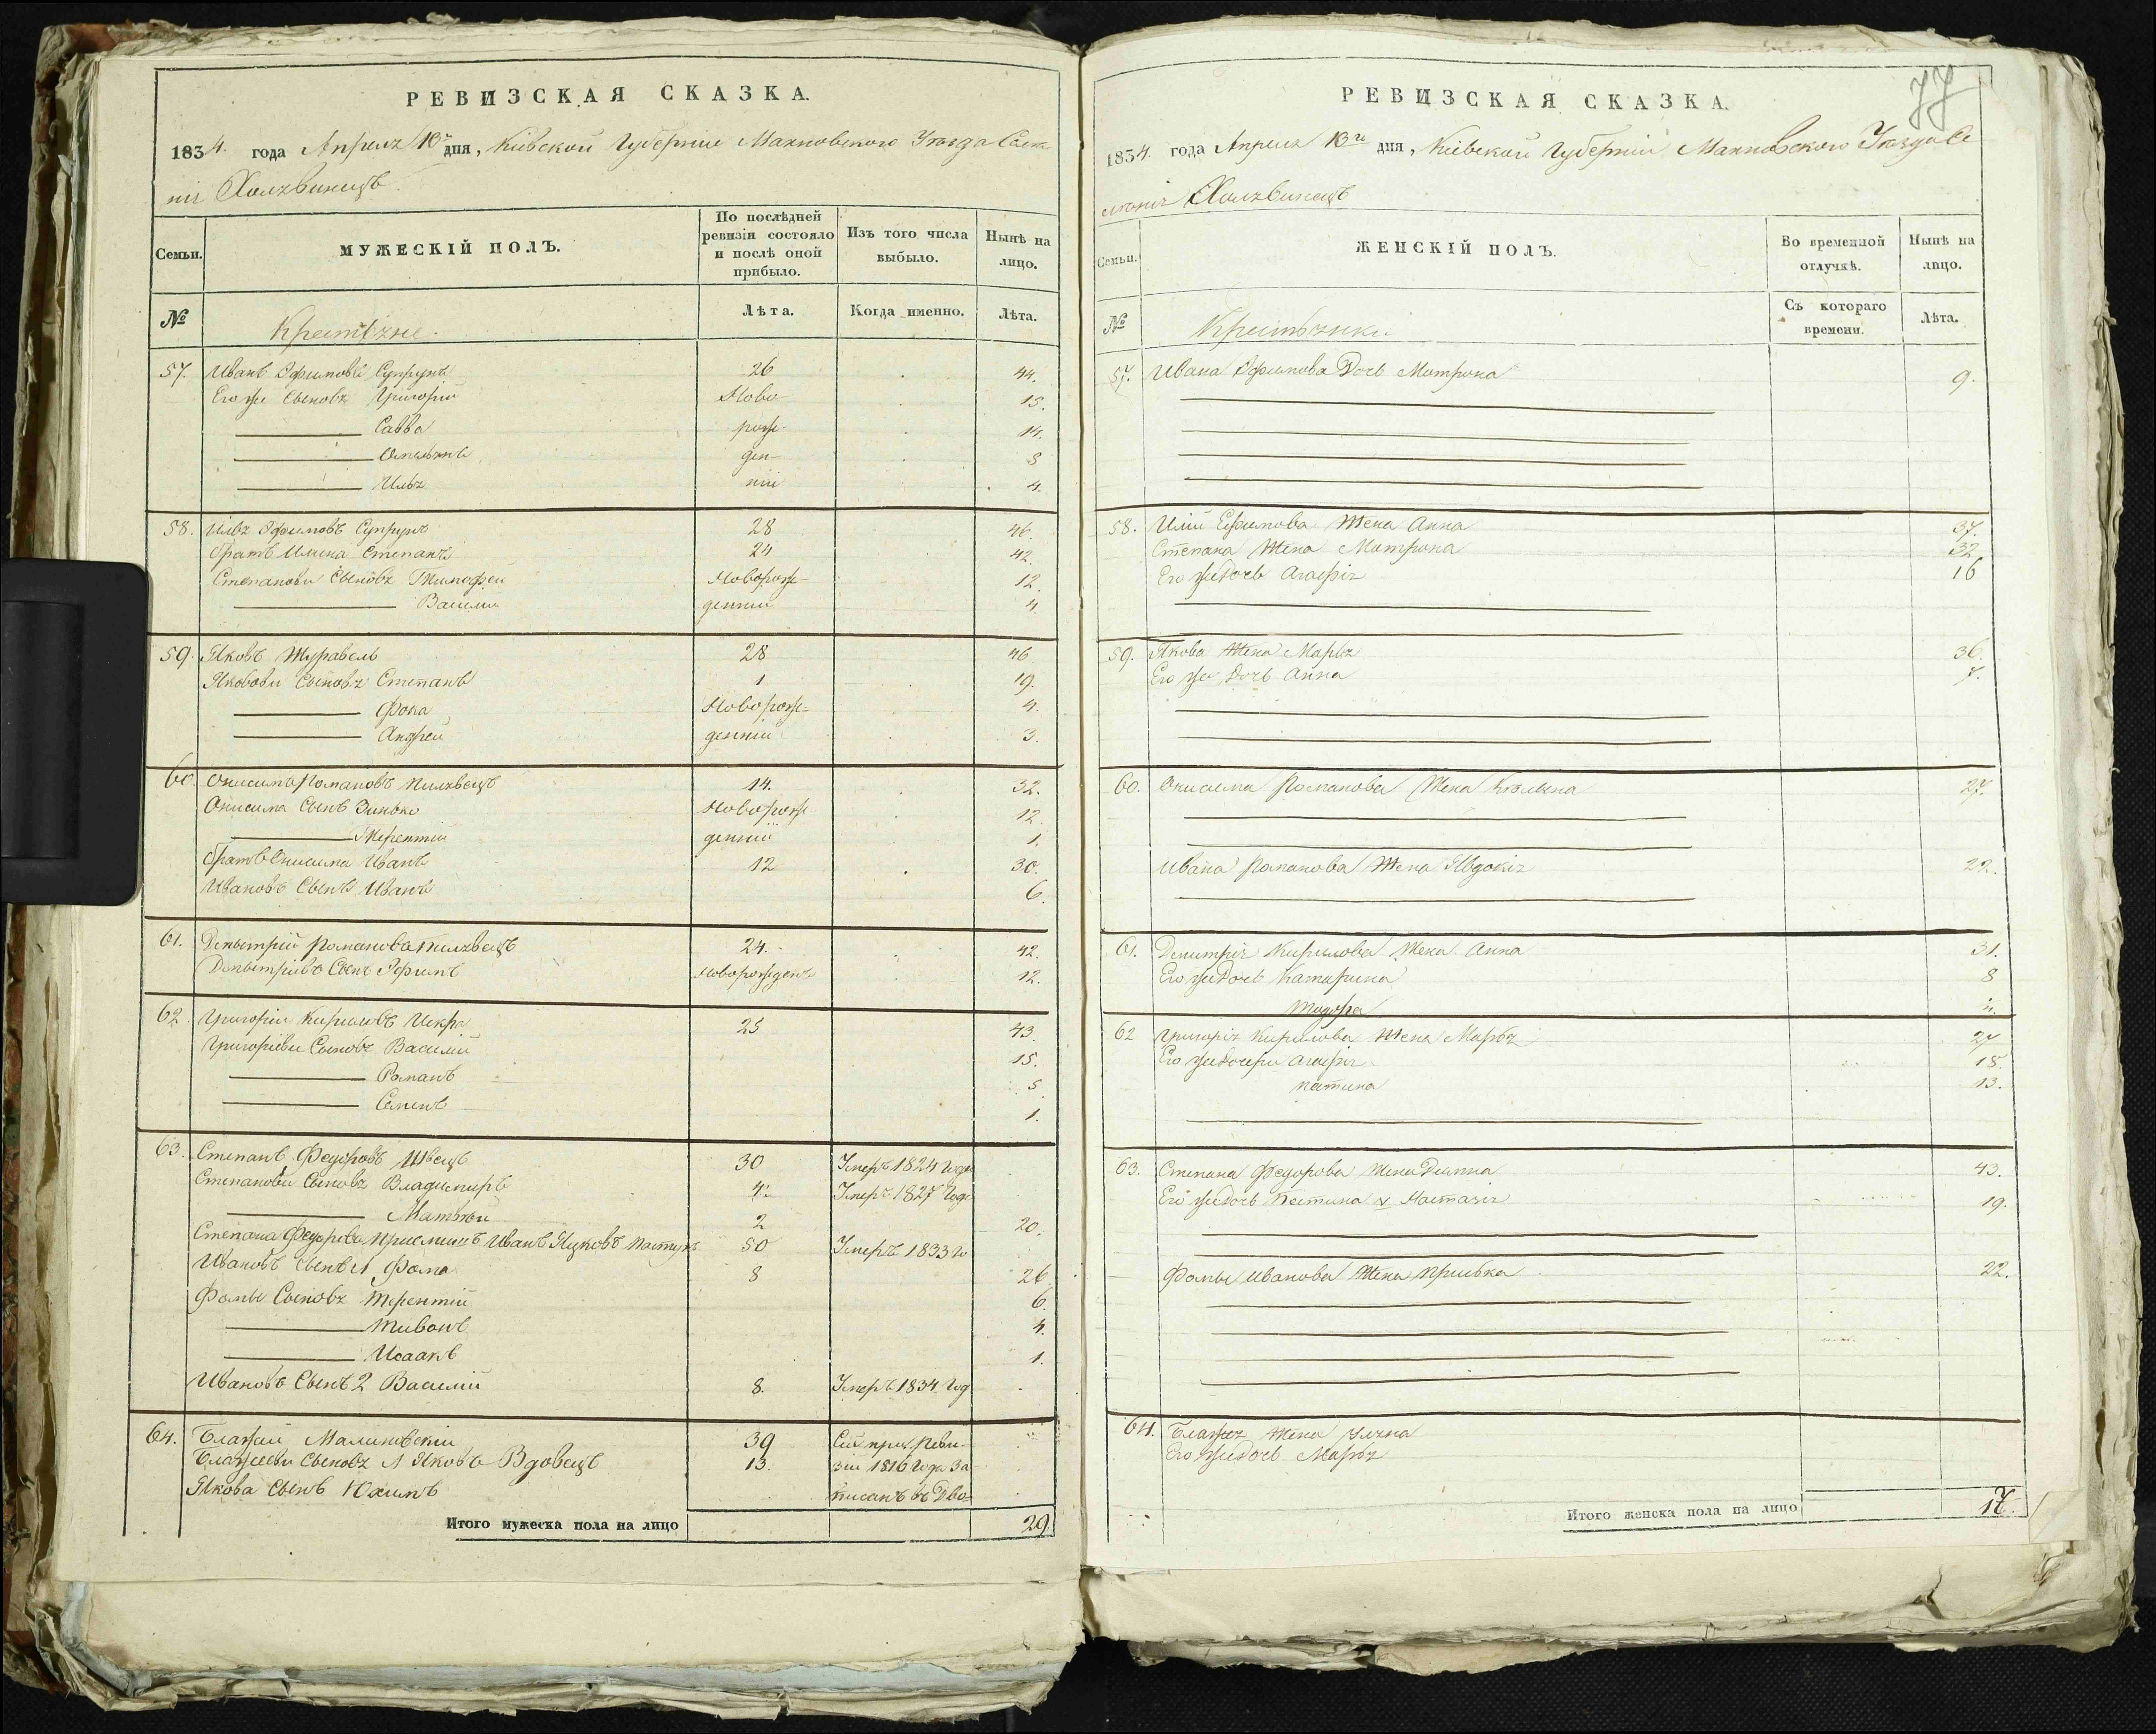 РЕВИЗСКАЯ СКАЗКА.
1834. года Апреля 13го дня, Кіевской Губерніи Махновского Уезда Селе
нія Халявинецъ.
Семьи.
МУЖЕСКІЙ ПОЛЪ.
По послѣдней ревизіи состояло и послѣ оной прибыло.
Изъ того числа выбыло.
Нынѣ на лицо.
№
Крестьяне.
Лѣта.
Когда именно.
Лѣта.
57. Иванъ Эфимовъ Супрунъ 26 44.
Его же Сыновя Григорій Ново- 15.
Савва рож- 14.
Омельянъ ден- 8
Илья ніи 4.
58. Илья Эфимовъ Супрунъ 28 46.
братъ Илииа Степанъ 24 42.
Степанови Сыновя Тимофей Воворож- 12.
Василій денніи 4.
59. Яковъ Журавель 28 46
Якобови Сыновя Степанъ 1 19.
Фока Новорож- 4.
Андрей денніи 3.
60. Онисимъ Романовъ Пилявецъ 14. 32.
Онисима Сынъ Зинько Новорож 12
Терентій денніи 1.
братъ Онисима Иванъ 12 30.
Ивановъ Сынъ Иванъ 6.
61. Демьтрій Романовъ Пилявецъ 24. 42.
Демьтріивъ Сынъ Яфимъ Новорожденъ 12.
62 Григорій Кириловъ Искра 25 43.
Григоріеви Сыновя Василій 15.
Романъ 5
Семенъ 1.
63. Степанъ Федоровъ Швецъ 30 Умеръ 1824 Года
Степанови Сыновя Владимиръ 4. Умеръ 1827 Года
Матвѣй 2 20.
Степана Федорова Приемишъ Иванъ Яцковъ Пастухъ 50 Умеръ 1833 Го
Ивановъ Сынъ 1 Фома 8 26
Фомы Сыновя Терентій 6.
Тивонъ 4.
Исаакъ 1.
Ивановъ Сынъ 2 Василій 8. Умеръ 1834 Год
64. Блажей Малиновскіи 39 Сіи при Реви-
Блажееви Сыновя 1 Яковъ Вдовецъ 13. зіи 1816 Года За
Якова Сынъ Юхимъ писанъ въ Дво-
Итого мужеска пола на лицо 29.
77
РЕВИЗСКАЯ СКАЗКА.
1834. года Апреля 13го дня, Кіевской Губерніи Махновского Уезда Се
ленія Халявинецъ
Семьи.
ЖЕНСКІЙ ПОЛЪ.
Во временной отлучкѣ.
Нынѣ на лицо.
№
Крестьянки
Съ котораго времени.
Лѣта.
57. Ивана Эфимова Дочь Матрона 9.
58. Иліи Ефимова Жена Анна 37.
Степана Жена Матрона 32.
Его же Дочь Агафія 16
59. Якова Жена Марья 36
Его же Дочь Анна 7.
60. Онисима Романова Жена 27.
Ивана Романова Жена Явдокія 22.
61. Димитрія Кирилова Жена Анна 31.
Его же Дочь Катарина 8
Тидора
62 Григорія Кирилова Жена Марья 27
Его же Дочери Агафія 15.
Пестина 13.
63. Степана Федорова Жена 43.
Его же Дочь Пестина х Настазія 19.
Фомы Иванова Жена Приська 22.
64. Блажея Жена Уляна
Его же Дочь Марья
Итого женска пола на лицо 17.